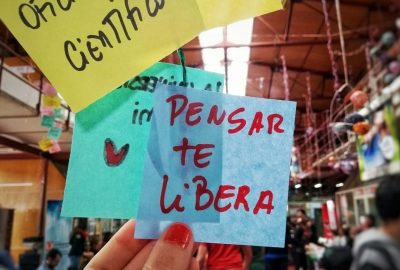 CIENTÍFIC
PENSAR
TE
LiBERA